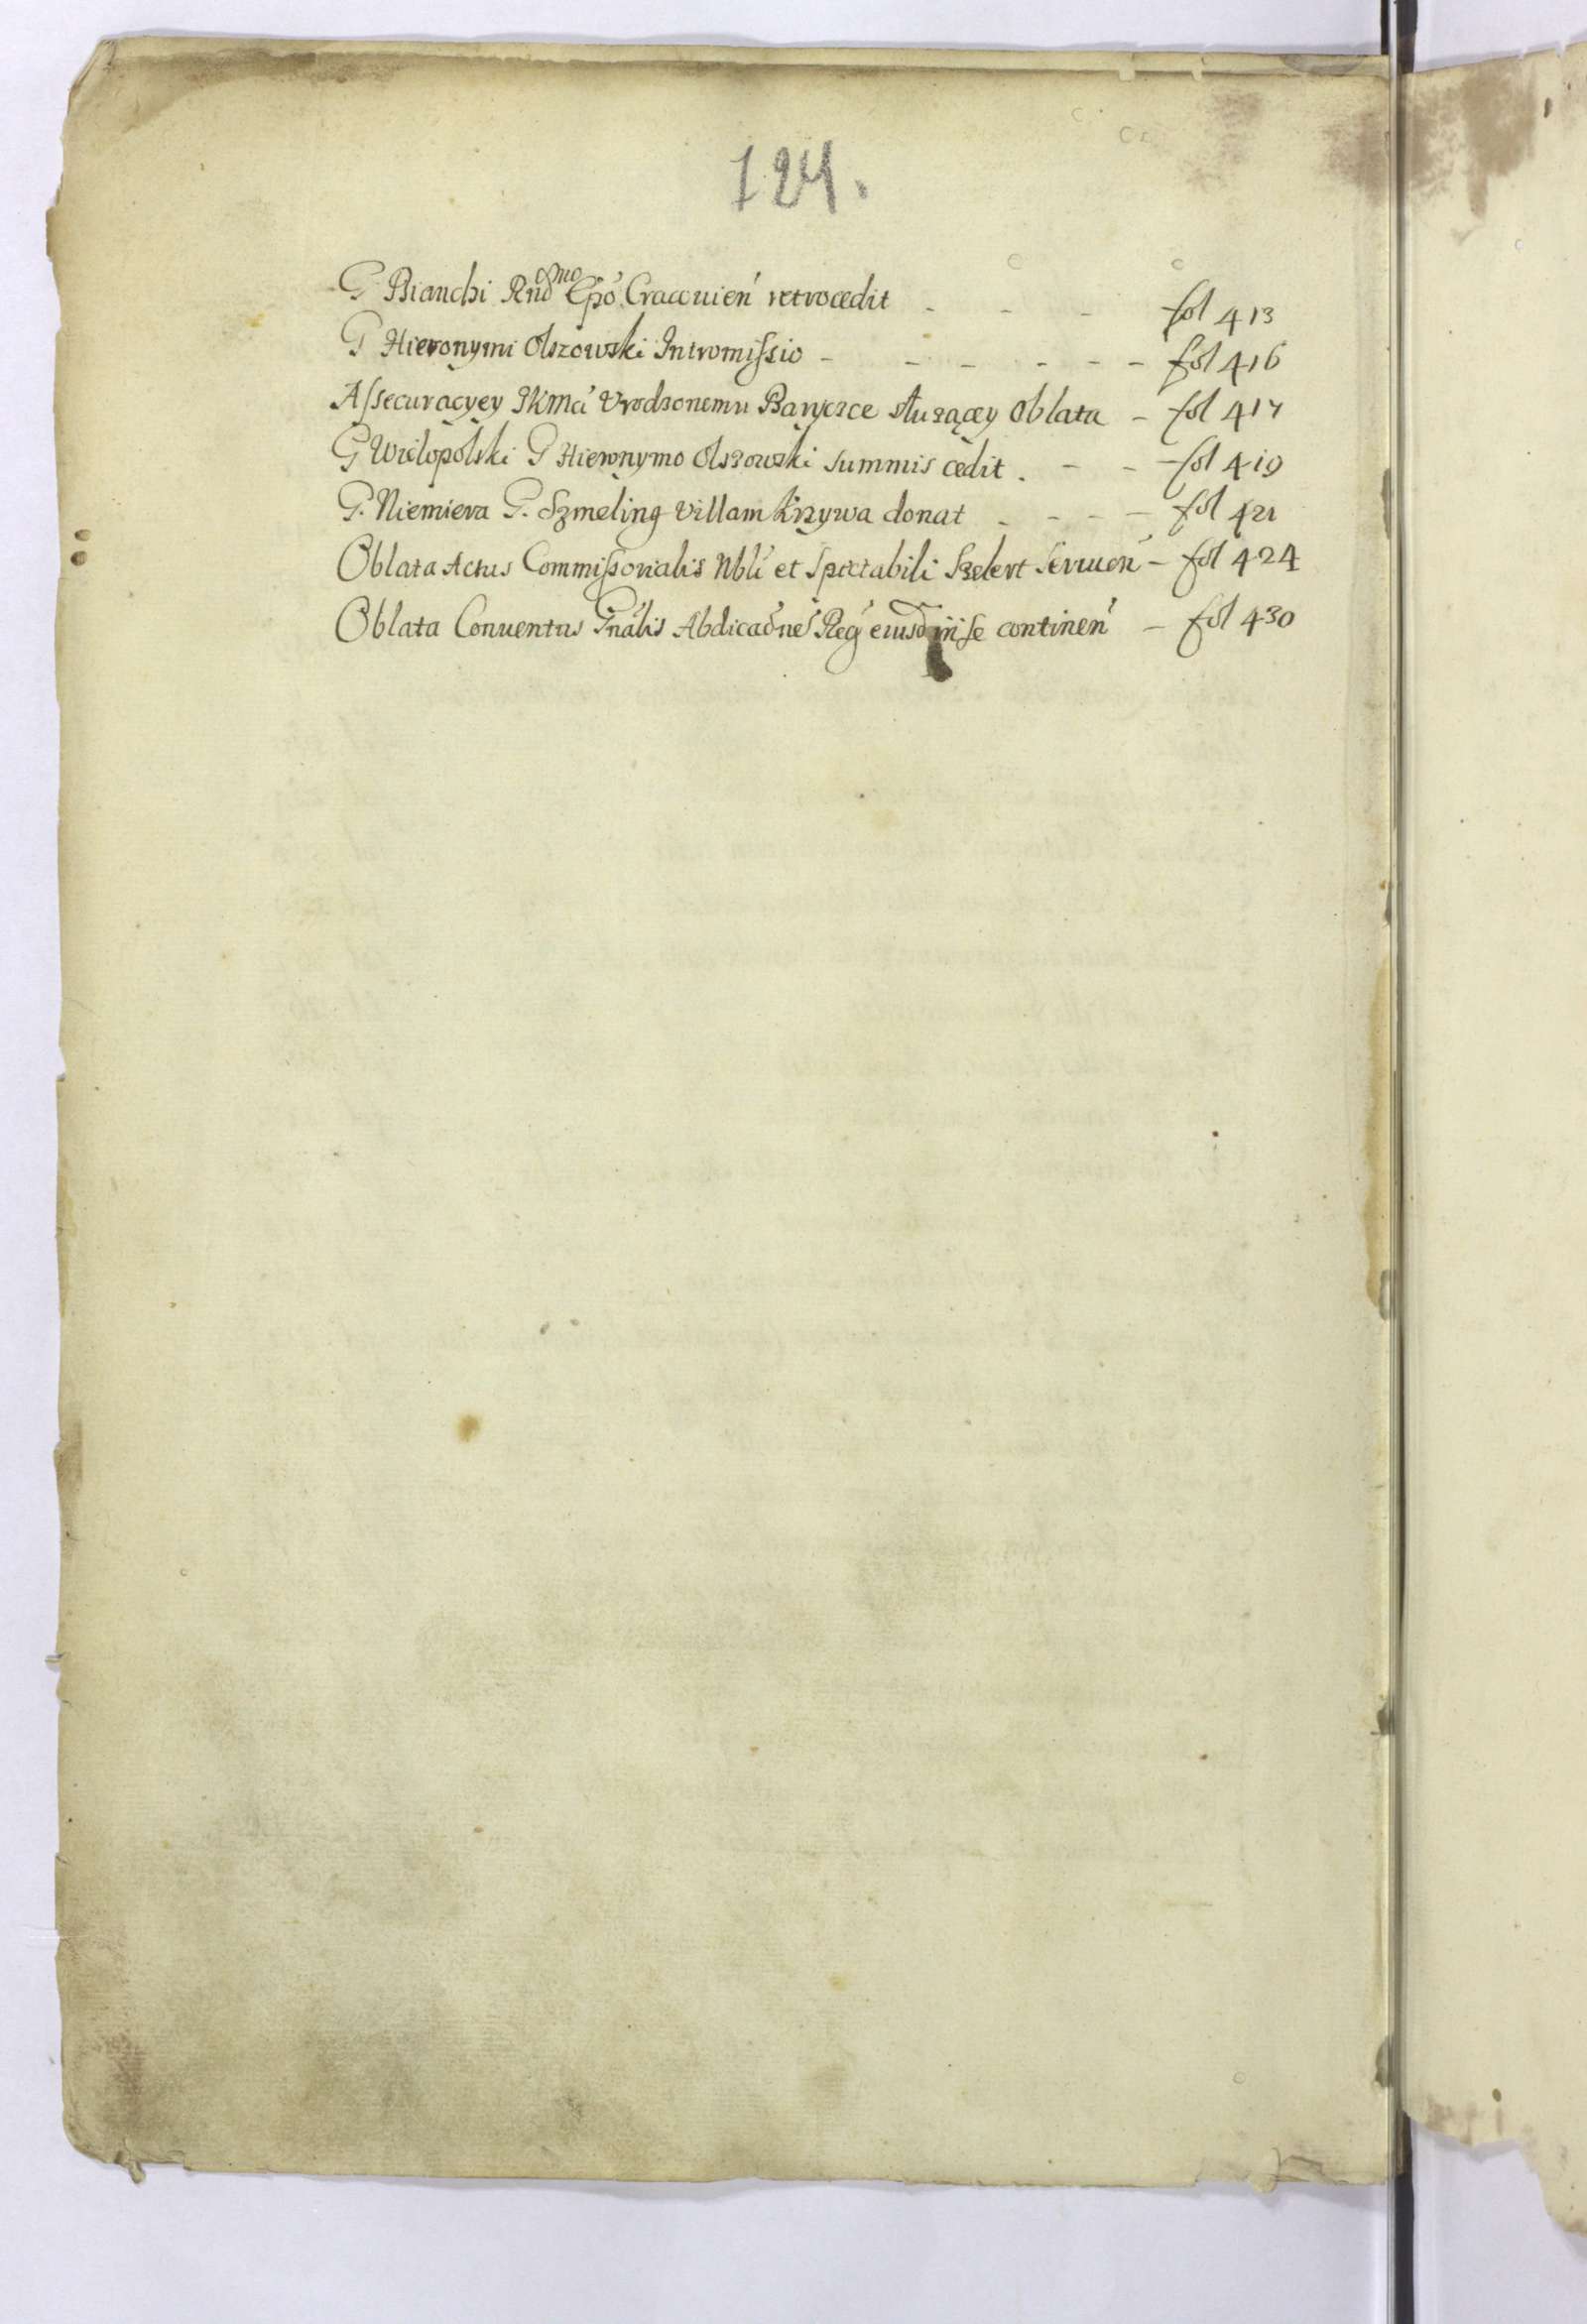 124.
G Bianchi Rnd͠smo Epo Cracouien retrocedit - - - fol 413
G Hieronymi Olszowski Intromissio - - - - - - fol 416
Assecuracyey JKMci Vrodzonemu Baryczce służącey Oblata - fol 417
G Wielopolski G Hieronymo Olszowski summis cedit . - - - fol 419
G. Niemiera G. Szmeling Villam Krzywa donat - - - - fol 421
Oblata Actus Commissorialis Nbli et Spectabili Szelert Seruien - fol 424
Oblata Conuentus Gnalis Abdicaōne Reg eiusd in se continen - fol 430